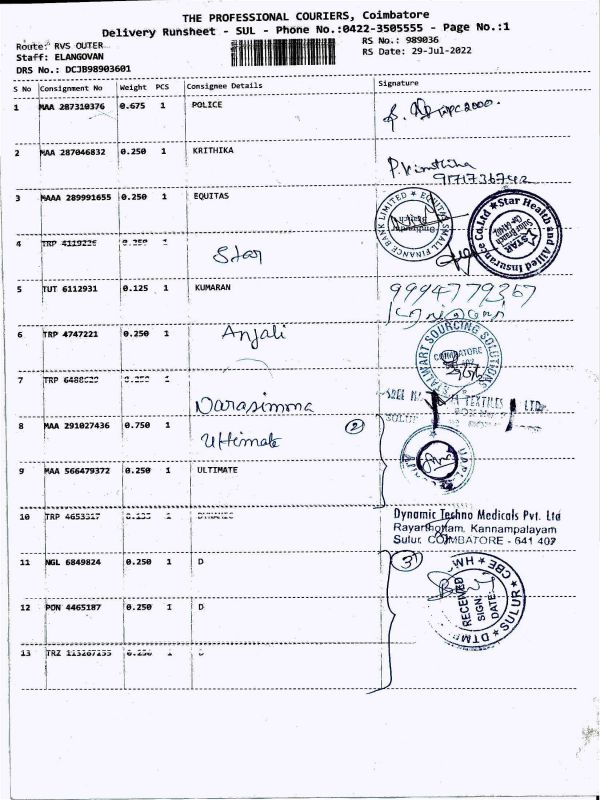 THE PROFESSIONAL COURIERS, Coimbatore
Delivery Runsheet - SUL - Phone No.:0422-3505555 - Page No.:1
Route: RVS OUTER
RS No.: 989036
Staff: ELANGOVAN
RS Date: 29-Jul-2022
DRS No.: DCJB98903601
S No Consignment No Weight PCS Consignee Details Signature
1 MAA 287310376 0.675 1 POLICE
2 MAA 287046832 0.250 1 KRITHIKA
P.Krinthika
3 MAAA 289991655 0.250 1 EQUITAS
EQUITAS SMALL FINANCE BANK LIMITED
Star Health and Allied Insurance Co.Ltd
STAR
Sulur Branch
4 TRP 1 Star
5 TUT 6112931 0.125 1 KUMARAN
9994779367
6 TRP 4747221 0.250 1 Anjali
STALWART SOURCING SOLUTIONS
COIMBATORE
7 TRP
Narasimma
TEXTILES LTD
SULUR
8 MAA 291027436 0.750 1 Ultimate 2
9 MAA 566479372 0.250 1 ULTIMATE
10 TRP 1
Dynamic Techno Medicals Pvt. Ltd
Rayarthottam, Kannampalayam
Sulur, COIMBATORE - 641 402
11 NGL 6849824 0.250 1 D
3
12 PON 4465187 0.250 1 D
DTMP HM CBE SULUR
RECEIVED
SIGN:
DATE:
13 TRZ 1